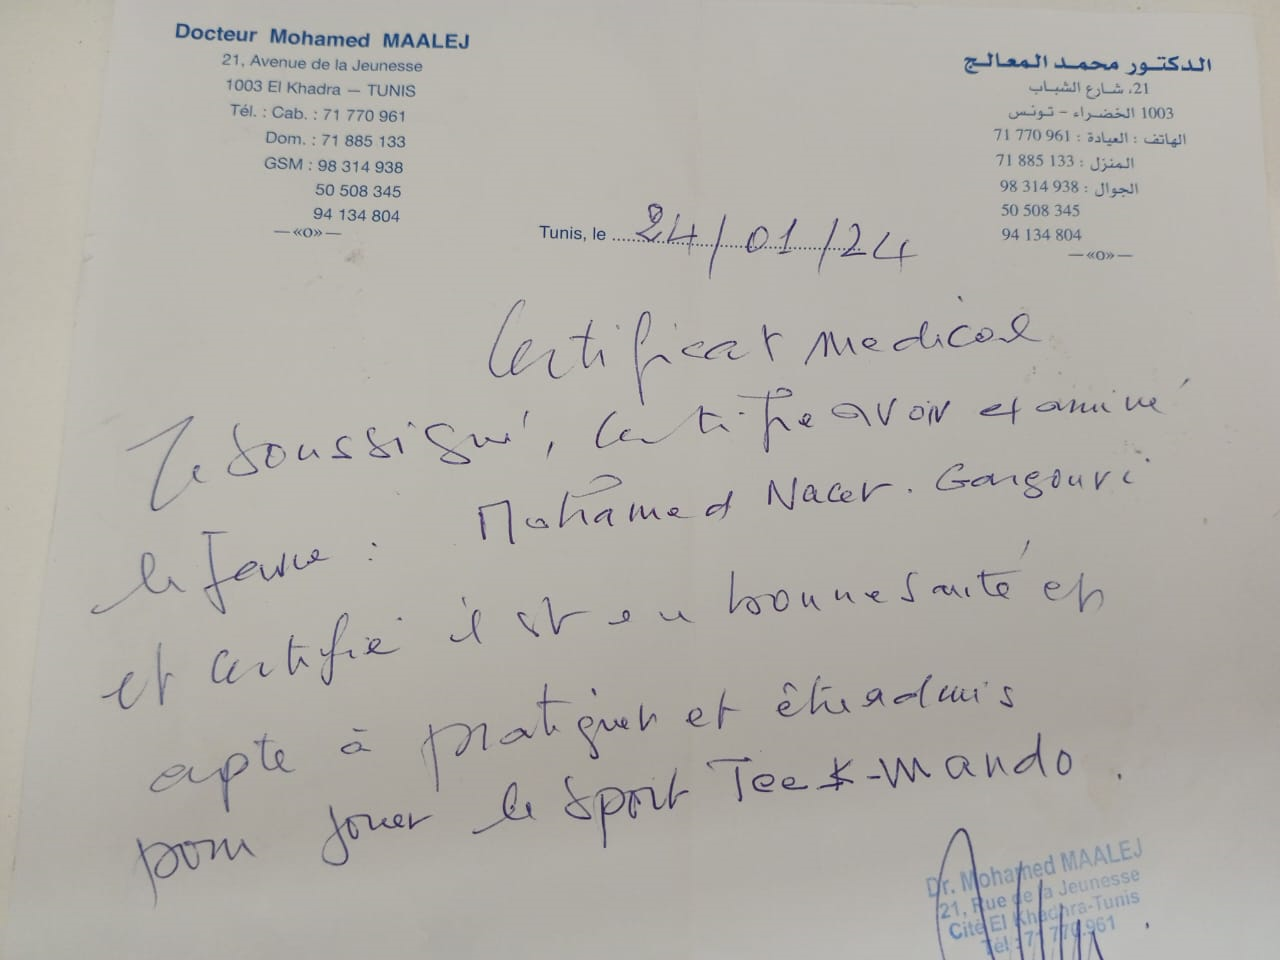 Docteur Mohamed MAALEJ
21, Avenue de la Jeunesse
1003 El Khadra — TUNIS
Tél. : Cab. : 71 770 961
Dom. : 71 885 133
GSM : 98 314 938
50 508 345
94 134 804
—«O»—
الدكتور محمد المعالج
21، شارع الشباب
1003 الخضراء - تونس
الهاتف : العيادة : 961 770 71
المنزل : 133 885 71
الجوال : 938 314 98
50 508 345
94 134 804
—«O»—
Tunis, le 24/01/24
Certificat medical
Je soussigné, certifie avoir examiné
le jeune : Mohamed Nacer. Gargouri
et certifie il est en bonne santé et
apte à pratiquer et être admis
pour jouer le sport Teek-mando.
Dr. Mohamed MAALEJ
21, Rue de la Jeunesse
Cité El Khadhra-Tunis
Tél : 71 770.961